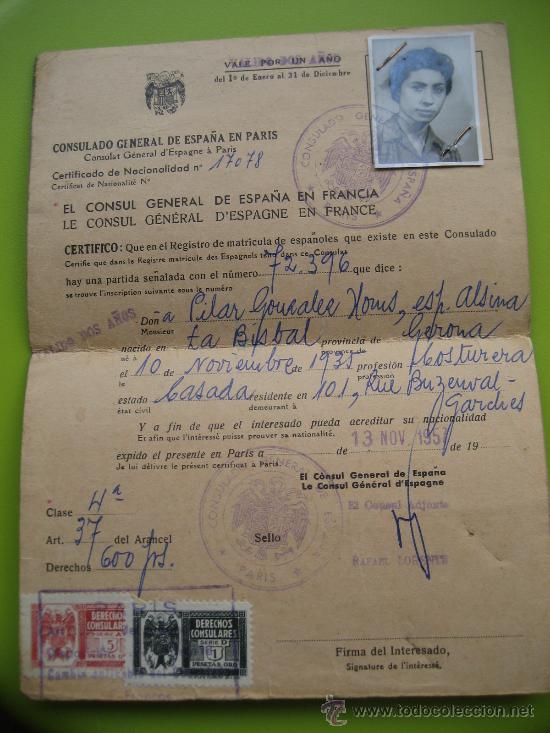 VALE POR UN AÑO
VALIDO DOS AÑOS
del 1º de Enero al 31 de Diciembre
CONSULADO GENERAL DE ESPAÑA EN PARIS
Consulat Général d'Espagne à Paris
Certificado de Nacionalidad nº 17078
Certificat de Nationalité Nº
CONSULADO GENERAL ESPAÑA
EL CONSUL GENERAL DE ESPAÑA EN FRANCIA
LE CONSUL GÉNÉRAL D'ESPAGNE EN FRANCE
CERTIFICO: Que en el Registro de matrícula de españoles que existe en este Consulado
Certifie que dans le Registre matricule des Espagnols tenu dans ce Consulat
hay una partida señalada con el número 72.396 que dice:
se trouve l'inscription suivante sous le numéro
VALIDO DOS AÑOS
Don a Pilar Gonzalez Homs, esp. Alsina
Monsieur
nacido en La Bisbal provincia de Gerona
né à province de
el 10 de Noviembre de 1935 profesión Costurera
le profession
estado Casada residente en 101, Rue Buzenval-
état civil demeurant à Garches
Y a fin de que el interesado pueda acreditar su nacionalidad
Et afin que l'intéressé puisse prouver sa nationalité.
13 NOV. 1957
expido el presente en París a de de 19
Je lui délivre le présent certificat à Paris.
El Cónsul General de España
Le Consul Général d'Espagne
El Consul Adjunto
CONSULADO GENERAL PARIS
Clase 4ª
Art. 37 del Arancel
Derechos 600 frs.
Sello
RAFAEL LORENTE
PARIS
DERECHOS CONSULARES
5
PESETAS ORO
DERECHOS CONSULARES
SERIE D
1
PESETAS ORO
Firma del Interesado,
Signature de l'intéressé.
todocoleccion
http://www.todocoleccion.net